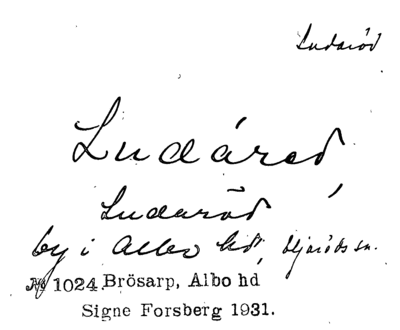 Ludaröd
Ludáred
Ludaröd
by i Albo hd, Eljaröds sn.
No 1024 Brösarp, Albo hd
Signe Forsberg 1931.